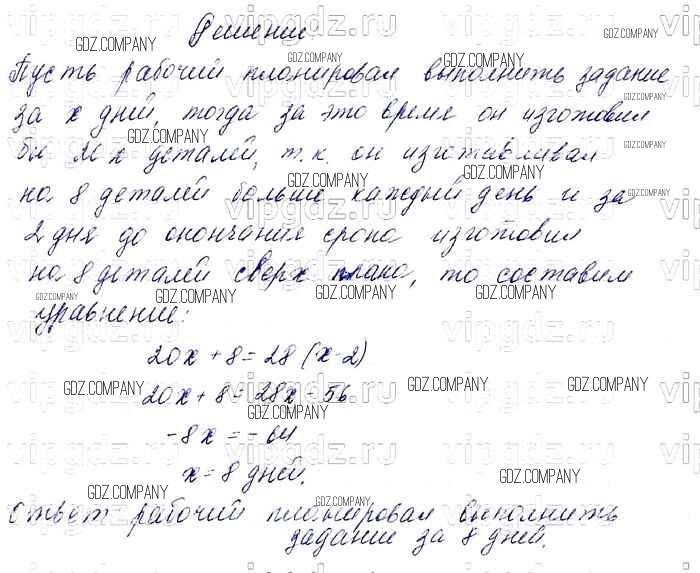 Решение
Пусть рабочий планировал выполнить задание
за x дней, тогда за это время он изготовил
бы x деталей, т.к. он изготавливал
на 8 деталей больше каждый день и за
2 дня до окончания срока изготовил
на 8 деталей сверх плана, то составим
уравнение:
20x + 8 = 28 (x-2)
20x + 8 = 28x - 56
-8x = -64
x = 8 дней.
ответ рабочий планировал выполнить
задание за 8 дней.
GDZ.COMPANY
vipgdz.ru